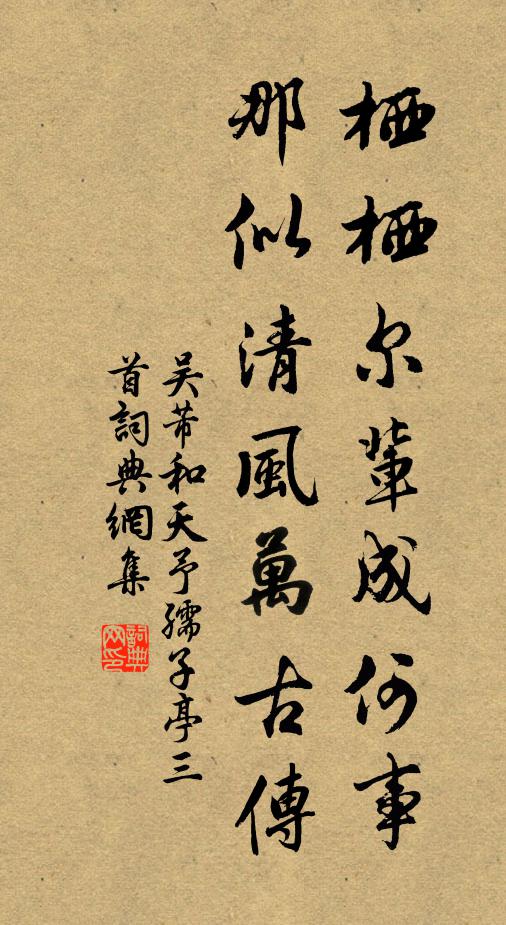 栖栖尔軰成何事
那似清風萬古傳
吴芾和天予孺子亭三
首詞典網集
詞典
网印